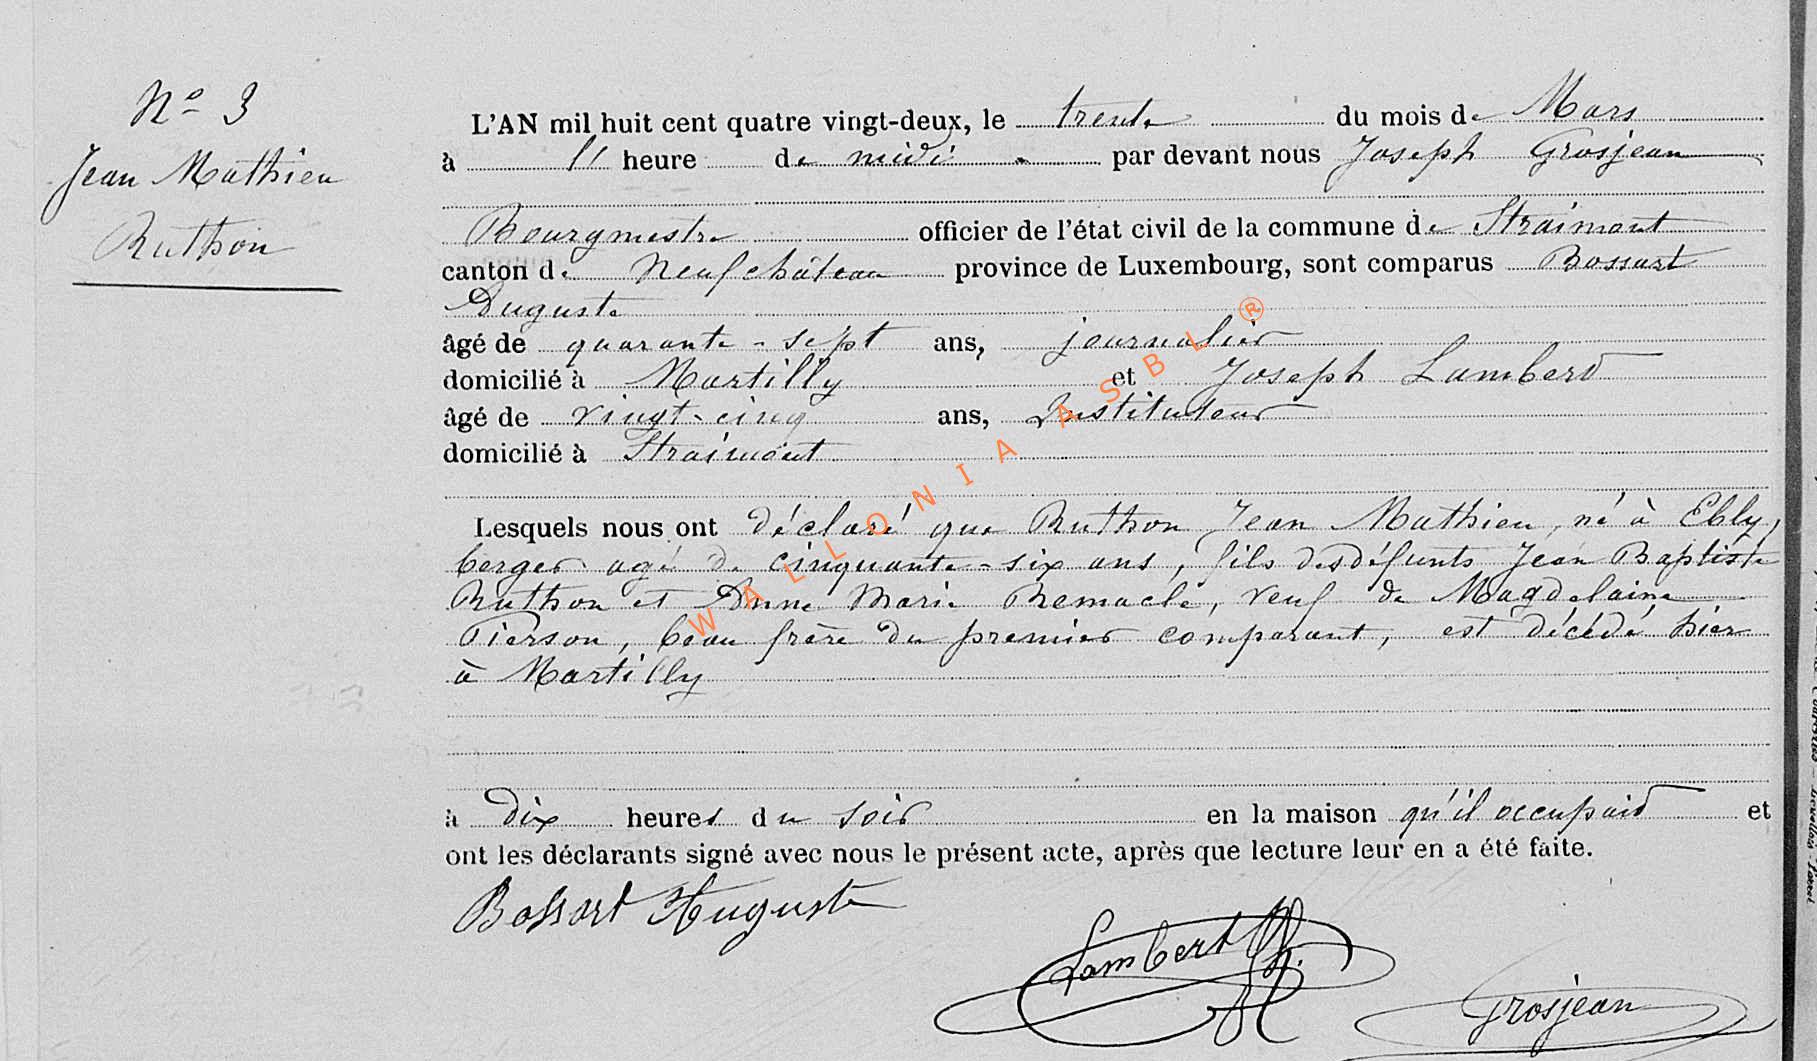 Nº 3
Jean Mathieu
Ruthon
L'AN mil huit cent quatre vingt-deux, le trente du mois de Mars
à 11 heure de midi par devant nous Joseph Grosjean
Bourgmestre officier de l'état civil de la commune de Straimont
canton de Neufchâteau province de Luxembourg, sont comparus Bossart
Auguste
âgé de quarante-sept ans, journalier
domicilié à Martilly et Joseph Lambert
âgé de vingt-cinq ans, Instituteur
domicilié à Straimont
Lesquels nous ont déclaré que Ruthon Jean Mathieu, né à Ebly,
berger agé de cinquante-six ans, fils des défunts Jean Baptiste
Ruthon et Anne Marie Remacle, veuf de Magdelaine
Pierson, beau frère du premier comparant, est décédé hier
à Martilly
à dix heures du soir en la maison qu'il occupait et
ont les déclarants signé avec nous le présent acte, après que lecture leur en a été faite.
Bossart Auguste
Lambert
Grosjean
WALLONIA ASBL ®